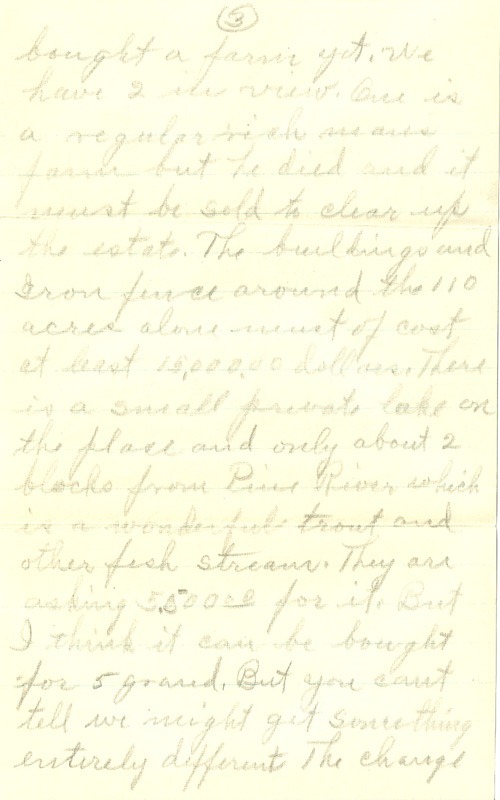 3
bought a farm yet. We
have 2 in view. One is
a regular rich mans
farm but he died and it
must be sold to clear up
the estate. The buildings and
Iron fence around the 110
acres alone must of cost
at least 15,000.00 dollars. There
is a small private lake on
the plase and only about 2
blocks from Pine River which
is a wonderful trout and
other fish stream. They are
asking 5,500 00 for it. But
I think it can be bought
for 5 grand. But you cant
tell we might get something
entirely different The change